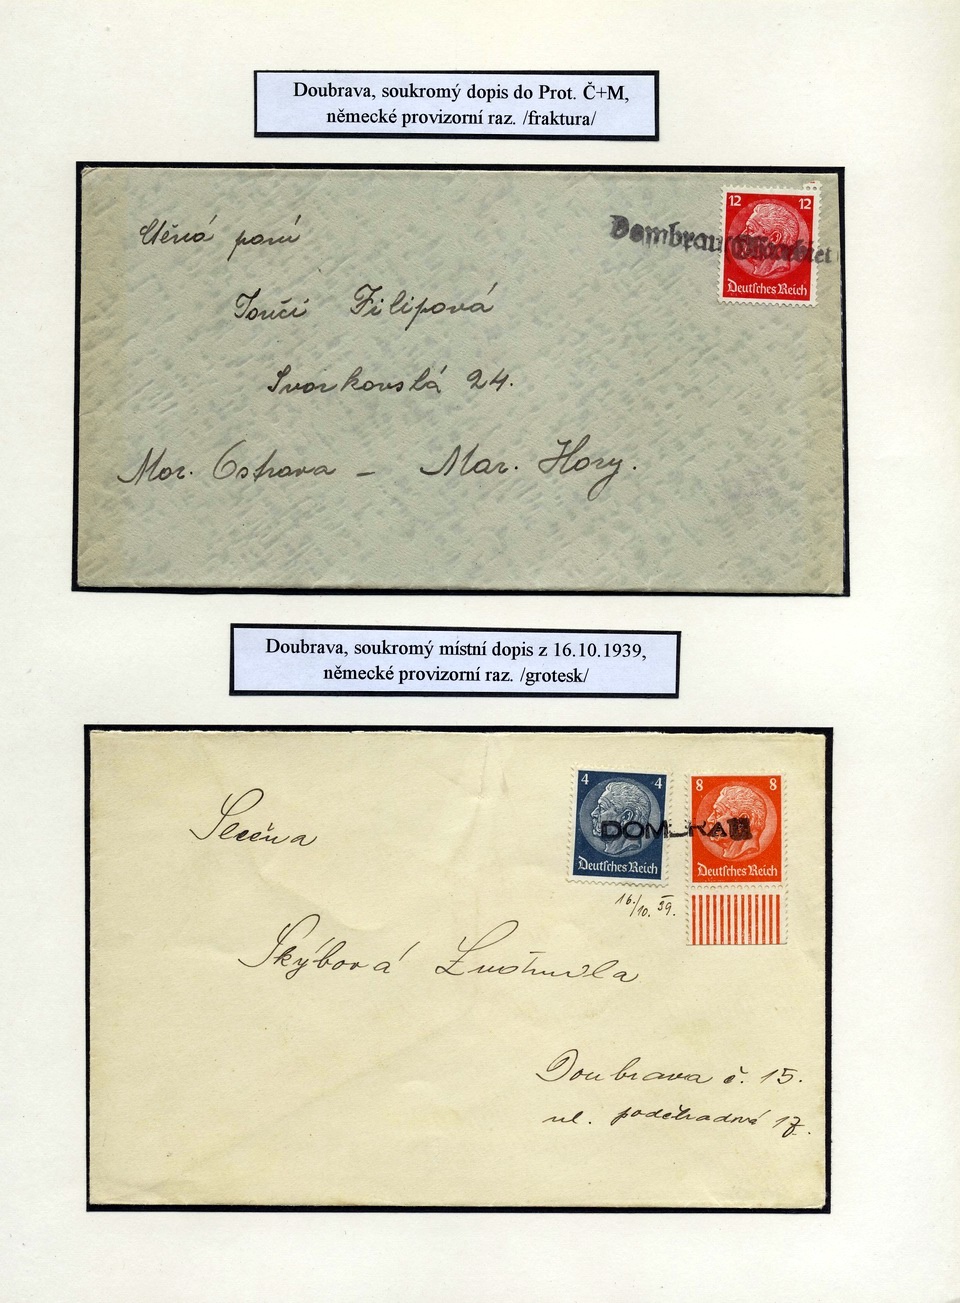 Doubrava, soukromý dopis do Prot. Č+M,
německé provizorní raz. /fraktura/
12 12
Dombrau
Deutsches Reich
Ctěná paní
Filipová
24.
Mor. Ostrava – Mar. Hory.
Doubrava, soukromý místní dopis z 16.10.1939,
německé provizorní raz. /grotesk/
4 4
8 8
Deutsches Reich
Deutsches Reich
16./10. 39.
Slečna
Skýbová Ludmila
Doubrava č. 15.
ul. 17.